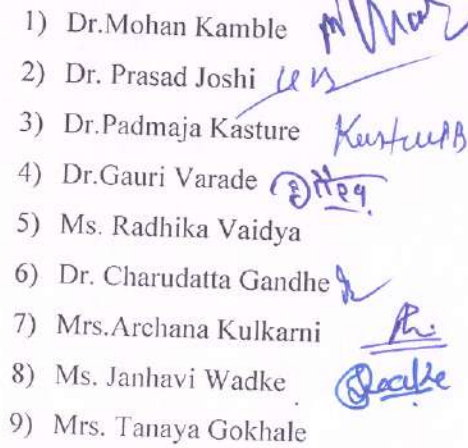 1) Dr.Mohan Kamble
2) Dr. Prasad Joshi
3) Dr.Padmaja Kasture KasturePB
4) Dr.Gauri Varade
5) Ms. Radhika Vaidya
6) Dr. Charudatta Gandhe
7) Mrs.Archana Kulkarni
8) Ms. Janhavi Wadke
9) Mrs. Tanaya Gokhale